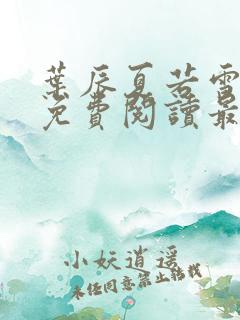 葉辰夏若雪
免費閱讀最
小妖逍遥
未经同意禁止转载